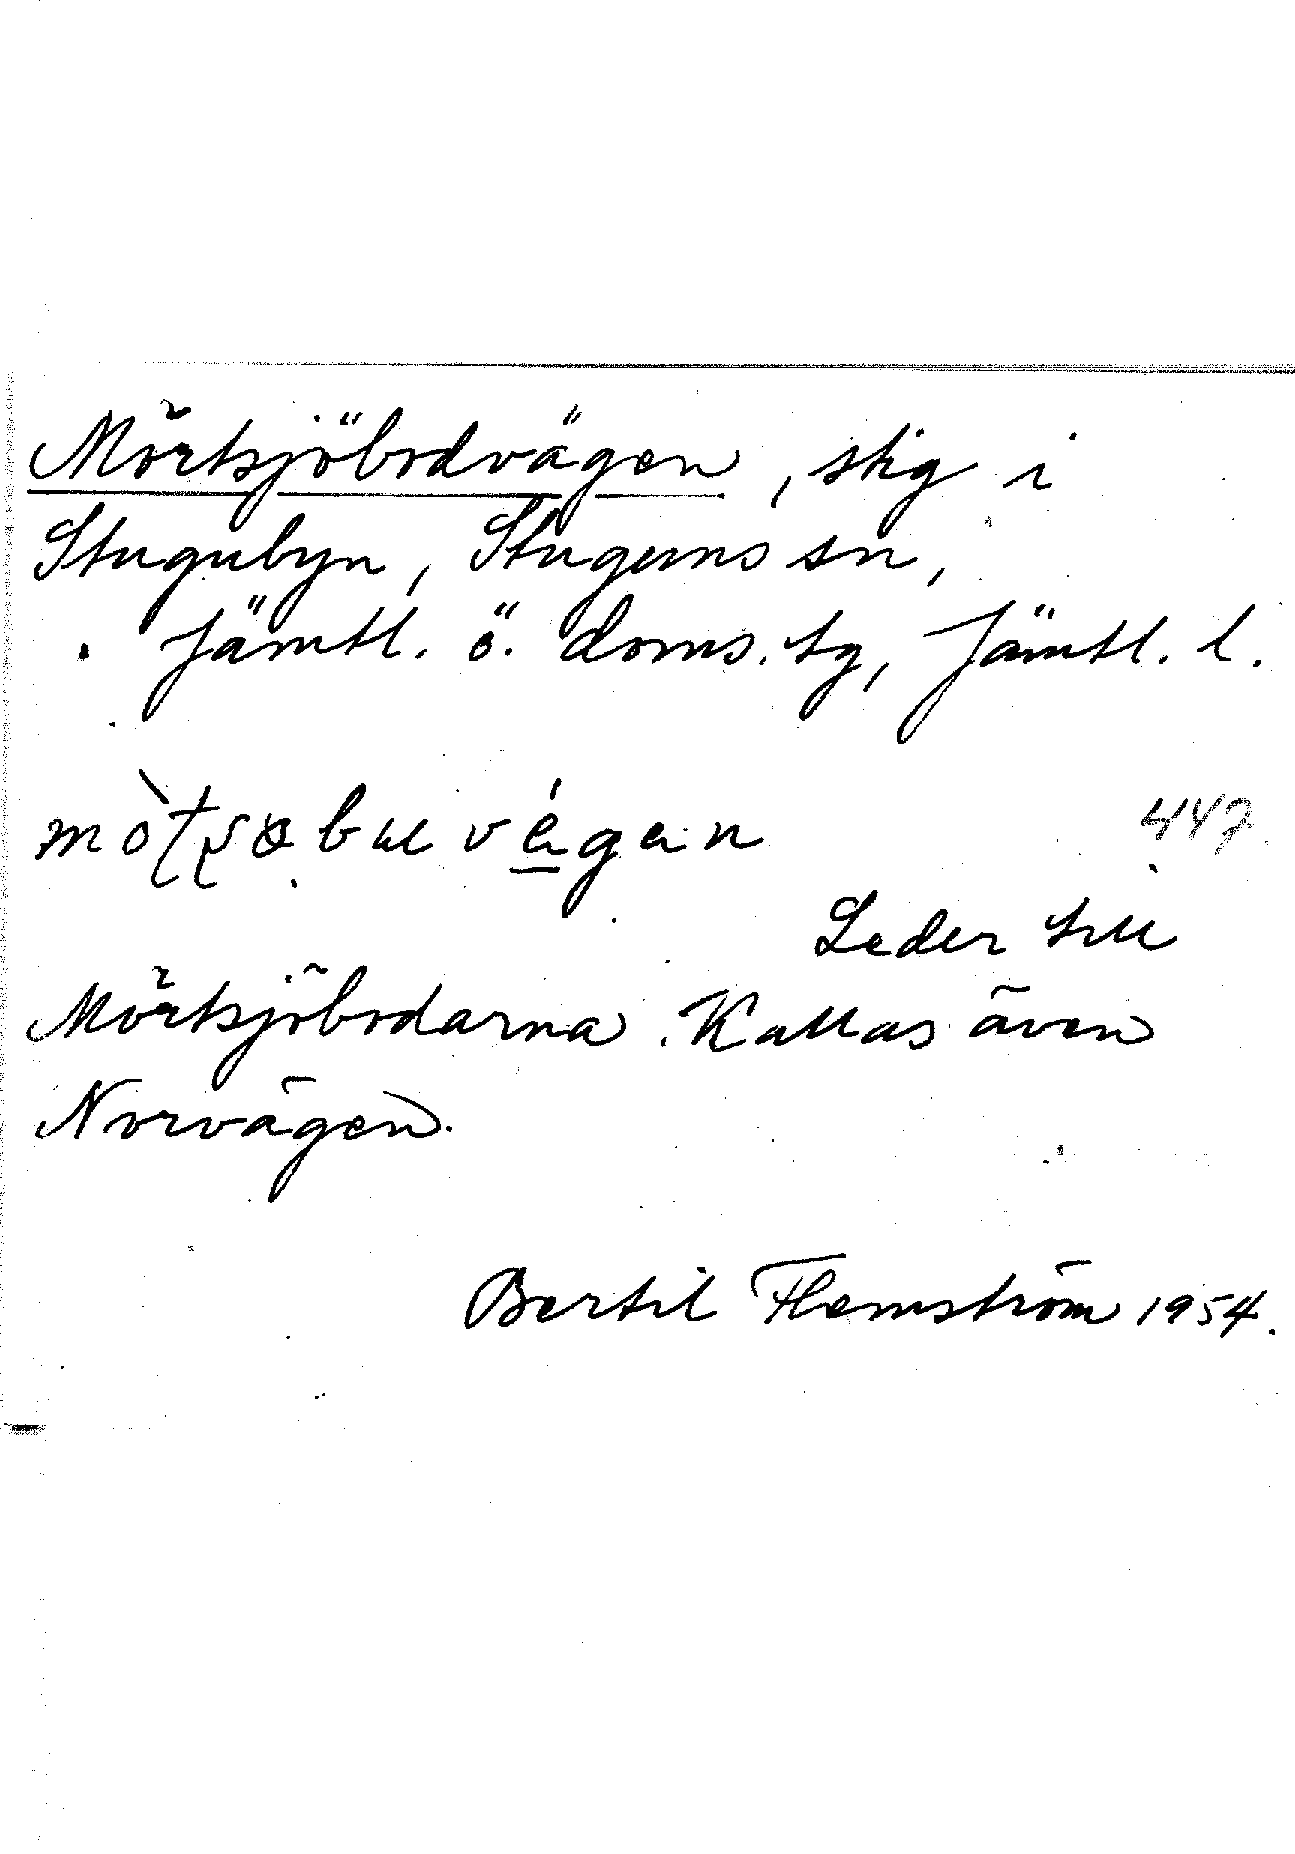 Mörtsjöbodvägen, stig i
Stugubyn, Stuguns sn,
Jämtl. ö. doms. tg, Jämtl. l.
447
Leder till
Mörtsjöbodarna. Kallas även
Norvägen.
Bertil Flemström 1954.